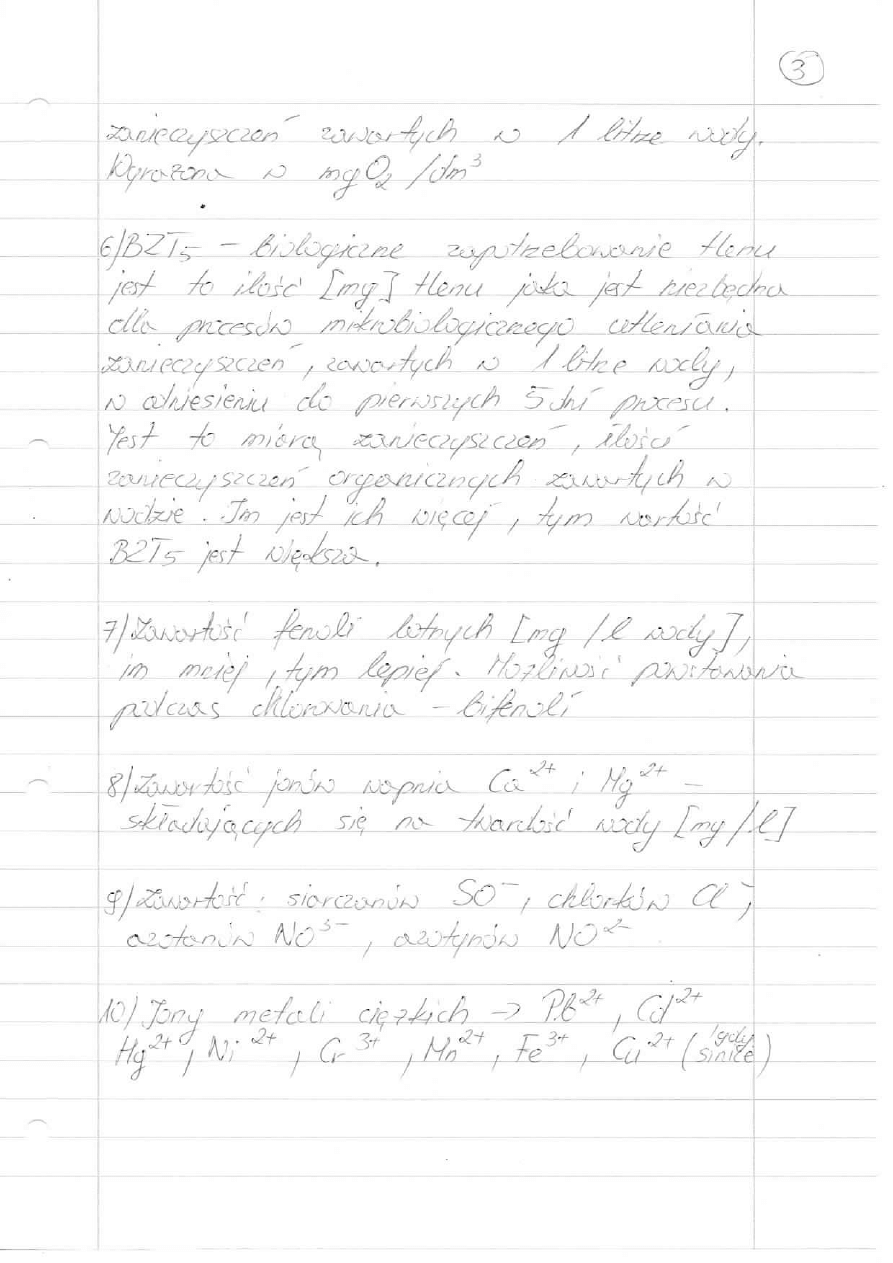 3
zanieczyszczeń zawartych w 1 litrze wody.
Wyrażona w mgO₂ /dm³
6/BZT₅ – biologiczne zapotrzebowanie tlenu
jest to ilość [mg] tlenu jaka jest niezbędna
dla procesów mikrobiologicznego utleniania
zanieczyszczeń, zawartych w 1 litrze wody,
w odniesieniu do pierwszych 5 dni procesu.
Jest to miarą zanieczyszczeń, ilości
zanieczyszczeń organicznych zawartych w
wodzie. Im jest ich więcej, tym wartość
BZT₅ jest większa.
7/Zawartość fenoli lotnych [mg /l wody],
im mniej, tym lepiej. Możliwość powstawania
podczas chlorowania – bifenoli
8/Zawartość jonów wapnia Ca²⁺ i Mg²⁺ –
składających się na twardość wody [mg/l]
9/Zawartość: siarczanów SO⁻, chlorków Cl⁻,
azotanów NO³⁻, azotynów NO²⁻
10/Jony metali ciężkich → Pb²⁺, Cd²⁺,
Hg²⁺, Ni²⁺, Cr³⁺, Mn²⁺, Fe³⁺, Cu²⁺ (gdy sinice)